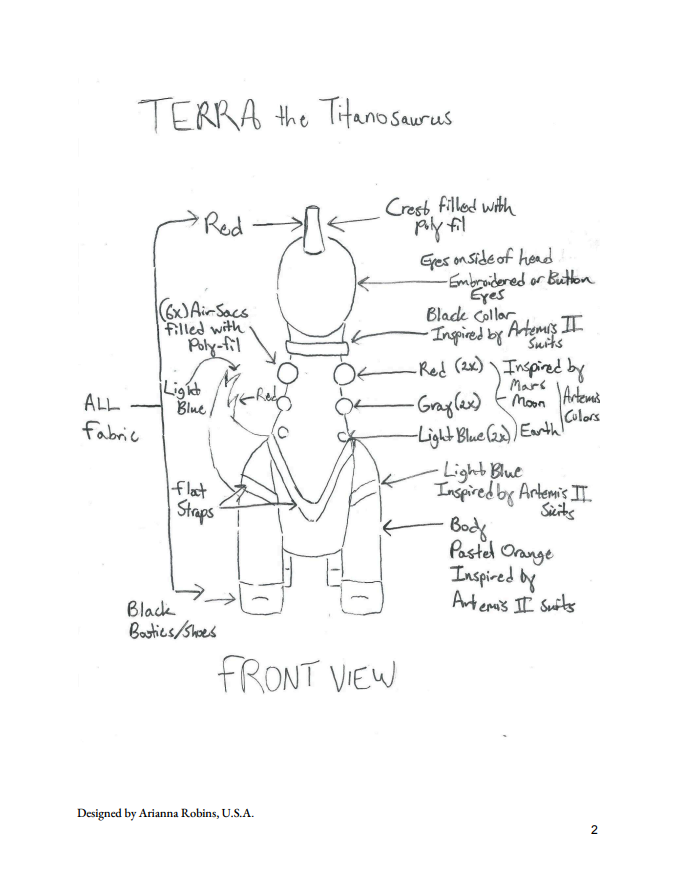 TERRA the Titanosaurus
Red
Crest filled with
Poly fil
Eyes on side of head
Embroidered or Button
Eyes
(6x) Air Sacs
filled with
Poly-fil
Black Collar
Inspired by Artemis II
Suits
Red (2x)
Inspired by
Mars
Light
Blue
Red
Gray (2x)
Moon
Artemis
Colors
ALL
Fabric
Light Blue (2x)
Earth
Light Blue
Inspired by Artemis II
Suits
flat
Straps
Body
Pastel Orange
Inspired by
Artemis II Suits
Black
Booties/Shoes
FRONT VIEW
Designed by Arianna Robins, U.S.A.
2